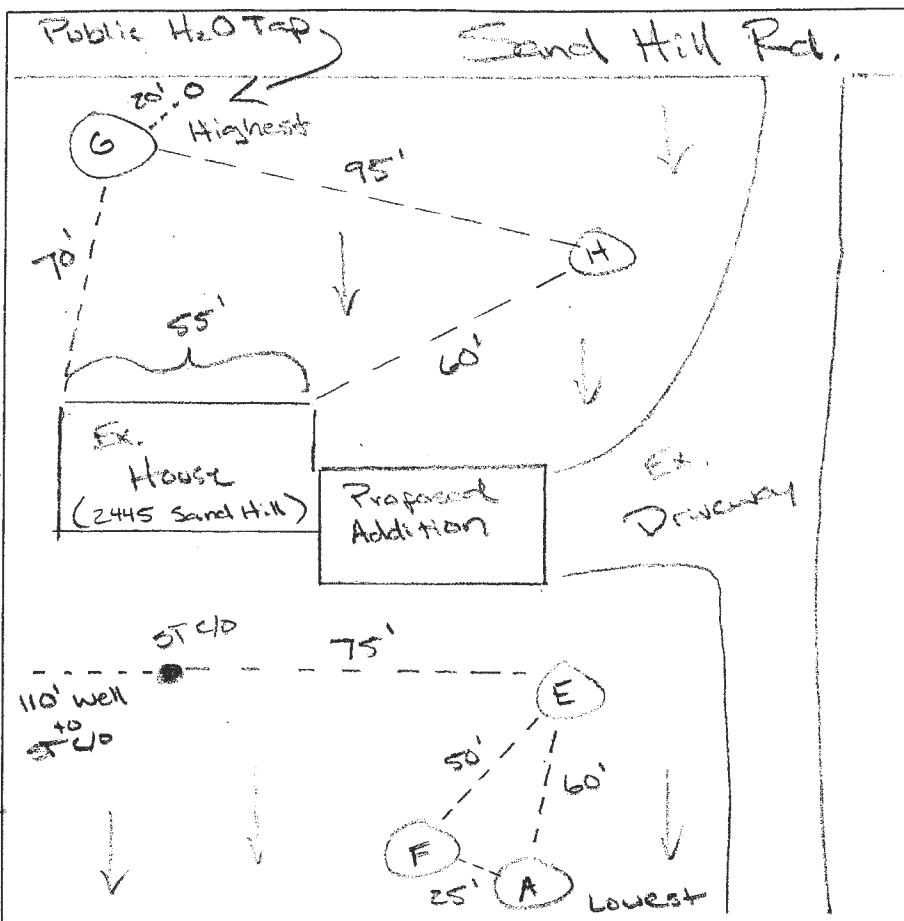 Public H2O Tap
Sand Hill Rd.
20'
O
Highest
G
95'
H
70'
55'
60'
Ex.
House
(2445 Sand Hill)
Proposed
Addition
Ex.
Driveway
ST C/O
75'
110' well
to
ST C/O
E
50'
60'
F
25'
A
Lowest